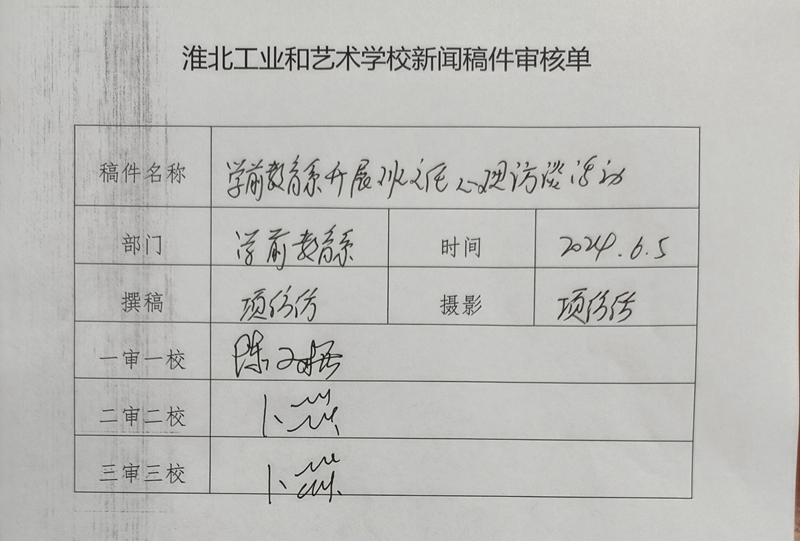 淮北工业和艺术学校新闻稿件审核单
稿件名称 学前教育系开展班主任心理访谈活动
部门 学前教育系 时间 2024.6.5
撰稿 项 摄影 项
一审一校 陈
二审二校 卜
三审三校 卜